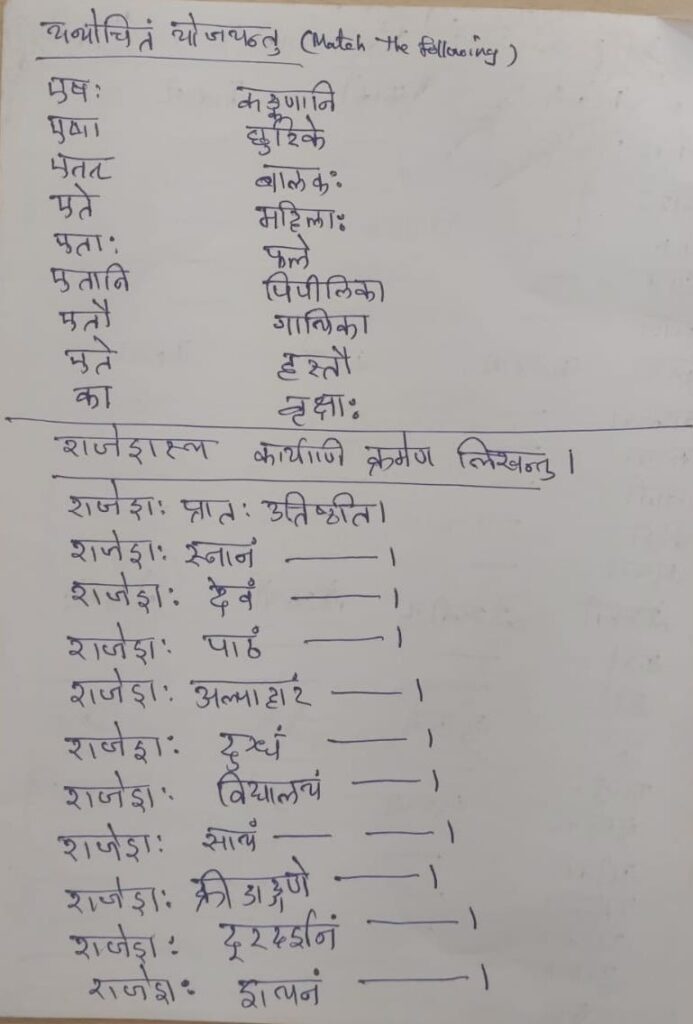 यथोचितं योजयन्तु (Match the following)
एषः कङ्कणानि
एषा छुरिके
एतत् बालकः
एते महिलाः
एताः फले
एतानि पिपीलिका
एतौ गायिका
एते हस्तौ
का वृक्षाः
राजेशस्य कार्याणि क्रमेण लिखन्तु।
राजेशः प्रातः उतिष्ठति।
राजेशः स्नानं ——।
राजेशः देवं ——।
राजेशः पाठं ——।
राजेशः अल्पाहारं ——।
राजेशः दुग्धं ——।
राजेशः विद्यालयं ——।
राजेशः सायं —— ——।
राजेशः क्रीडाङ्गणे ——।
राजेशः दूरदर्शनं ——।
राजेशः शयनं ——।